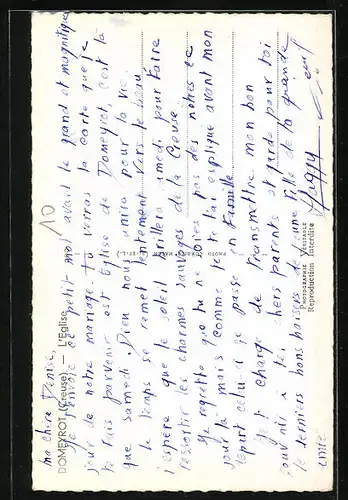 ma chère Denise,
Je t'envoie ce petit mot avant le grand et magnifique
jour de notre mariage. tu verras la carte que je
te fais parvenir est Eglise de Domeyrot, c'est là
que samedi Dieu nous unira pour la vie.
le temps se remet lentement vers le beau
j'espère que le soleil brillera samedi pour faire
ressortir les charmes sauvages de la Creuse.
Je regrette que tu ne sois pas des nôtres ce
jour là mais comme je te l'ai expliqué avant mon
départ celui-ci se passe en Famille.
Je te charge de transmettre mon bon
souvenir à tes chers parents et garde pour toi
le derniers bons baisers de une fille de la grande
amie.
Maggy
10
DOMEYROT (Creuse) — L'Eglise
PHOTOGRAPHIE VÉRITABLE
Reproduction Interdite